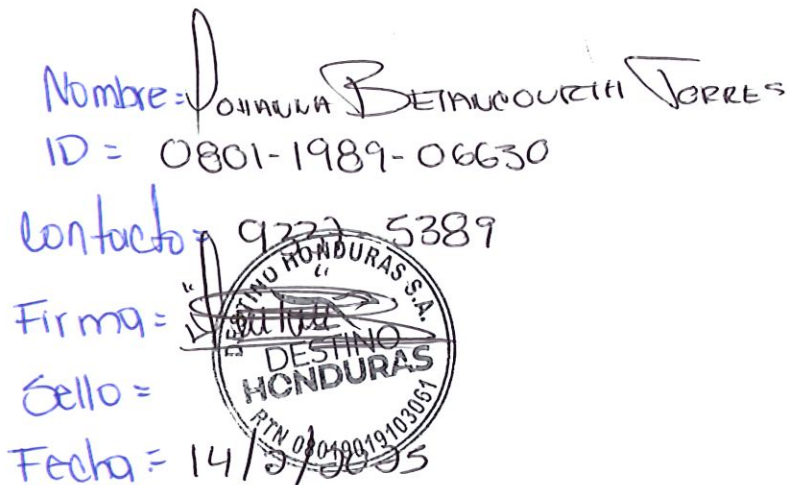 Nombre: Johanna Betancourth Torres
ID = 0801-1989-06630
Contacto: 9222 5389
Firma =
DESTINO HONDURAS S.A.
DESTINO
HONDURAS
RTN 08019019103061
Sello =
Fecha = 14/2/2025